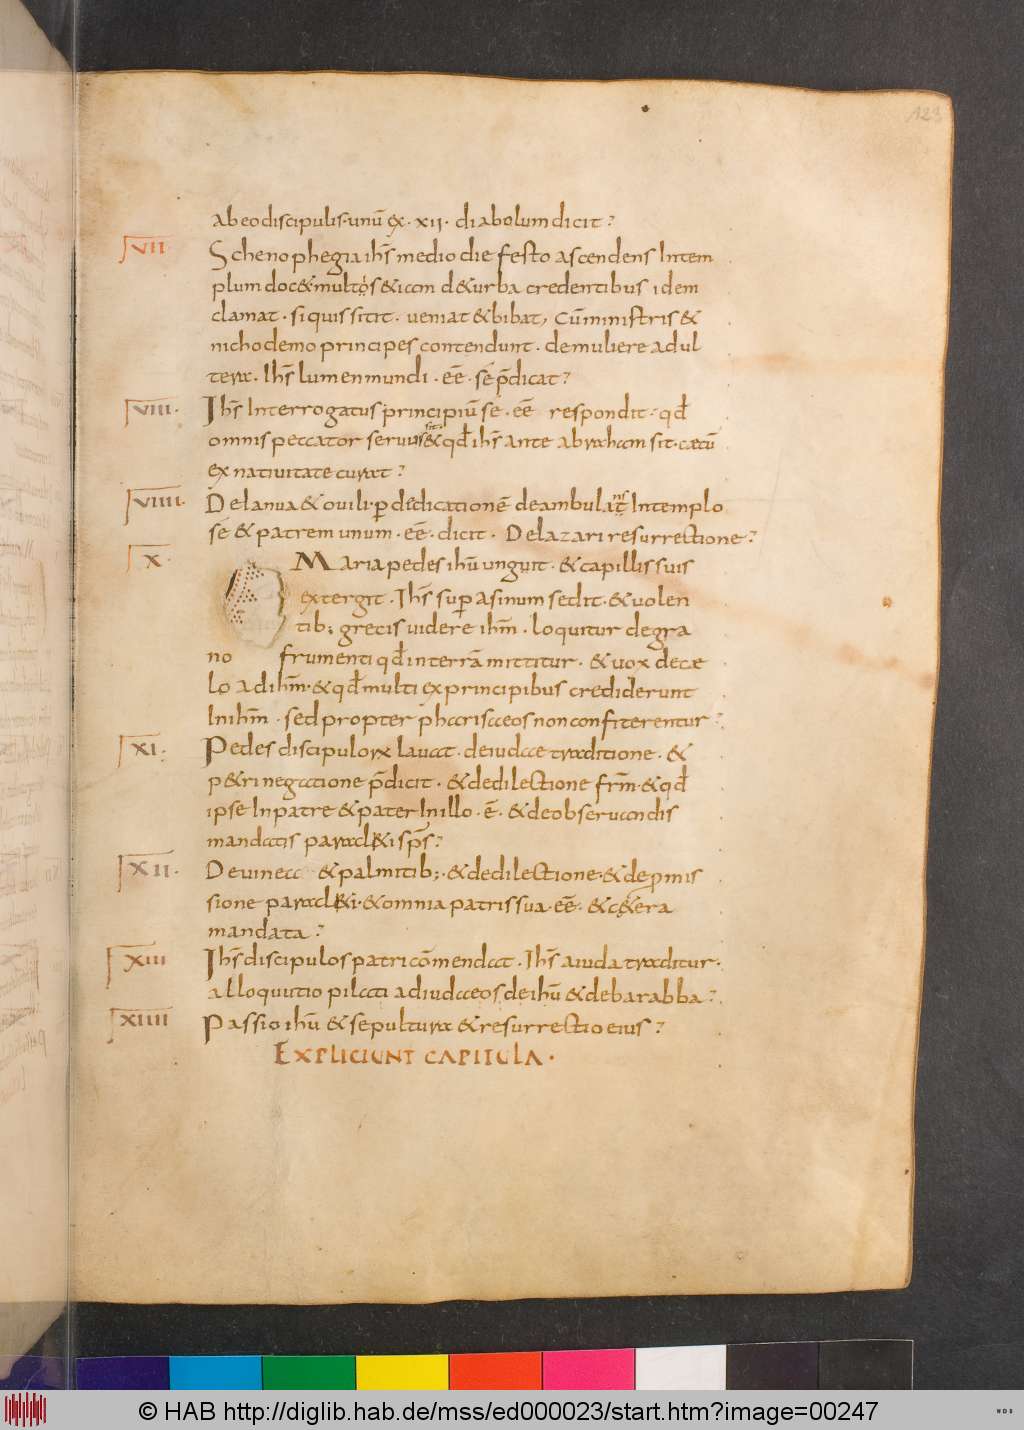 123
abeodiscipulis·unū ex·xii· diabolum dicit?
VII· Schenophegia ihs̄ mediodie festo ascendens Intem
plum docet&multos&iam de turba credentibus idem
clamat · siquis sitit · ueniat & bibat, Cū ministris &
nichodemo principes contendunt · de muliere adul
tera · Ihs̄ lumen mundi · eē · sē p̄dicat?
VIII· Ihs̄ Interrogatus principiū se · eē respondit · qđ
omnis peccator seruus sit & qđ ihs̄ ante abraham sit · cæcū
ex natiuitate curat?
VIIII· De Ianua & ouili · dedicationē deambulat Intemplo
sē & patrem unum · eē · dicit · De lazari resurrectione?
X· Maria pedes ihū unguit · & capillis suis
extergit · Ihs̄ sup asinum sedit · & uolen
tib; grecis uidere ihm̄ · loquitur de gra
no frumenti qđ in terrā mittitur · & uox de cæ
lo ad ihm̄ · & qđ multi ex principibus crediderunt
In ihm̄ · sed propter pharisaeos non confiterentur?
XI· Pedes discipulorum lauat · de iudae traditione · &
petri negatione p̄dicit · & de dilectione frm̄ · & qđ
ipse In patre & pater In illo · ē · & de obseruandis
mandatis paracliti sps̄?
XII· De uinea & palmitib; · & de dilectione · & de promis
sione paracliti · & omnia patris sua · eē · & cetera
mandata?
XIII Ihs̄ discipulos patri cōmendat · Ihs̄ a iuda traditur ·
alloquutio pilati ad iudaeos de ihū & de barabba?
XIIII Passio ihū & sepultura & resurrectio eius?
EXPLICIUNT CAPITULA ·
© HAB http://diglib.hab.de/mss/ed000023/start.htm?image=00247